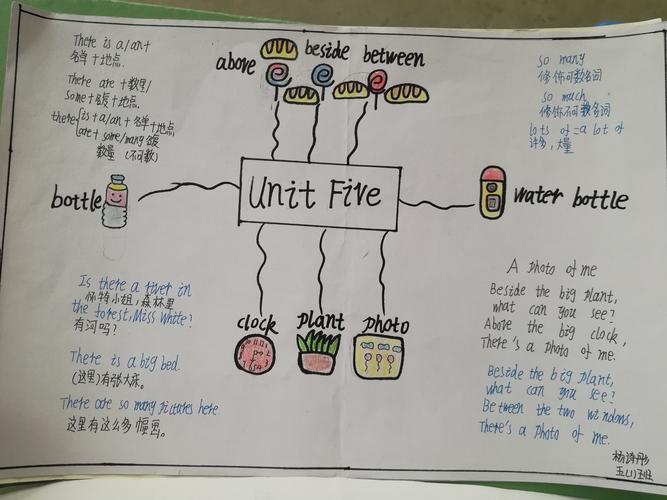 There is a/an+
名单+地点.
There are +数量/
some+名复+地点.
there{is+a/an+名单+地点
are+some/many 名复
数量 (不可数)
above
beside
between
so many
修饰可数名词
so much
修饰不可数名词
lots of =a lot of
许多,大量
bottle
Unit Five
water bottle
clock
plant
photo
Is there a river in
怀特小姐,森林里
the forest, Miss White?
有河吗?
There is a big bed.
(这里)有张大床.
There are so many pictures here.
这里有这么多幅画.
A photo of me
Beside the big plant,
what can you see?
Above the big clock,
There's a photo of me.
Beside the big plant,
what can you see?
Between the two windows,
There's a photo of me.
五(1)班